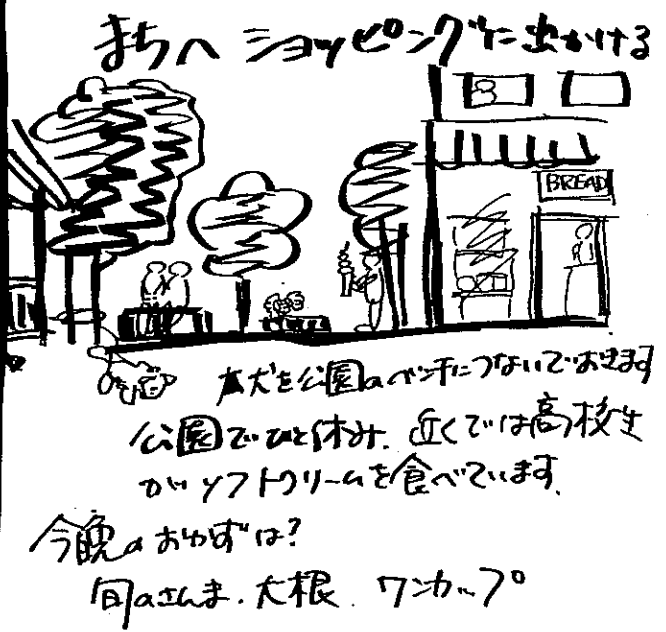 まちへ ショッピングに出かける
BREAD
犬を公園のベンチにつないでおきます
公園でひと休み. 近くでは高校生
がソフトクリームを食べています.
今晩のおかずは?
旬のさんま. 大根. ワンカップ